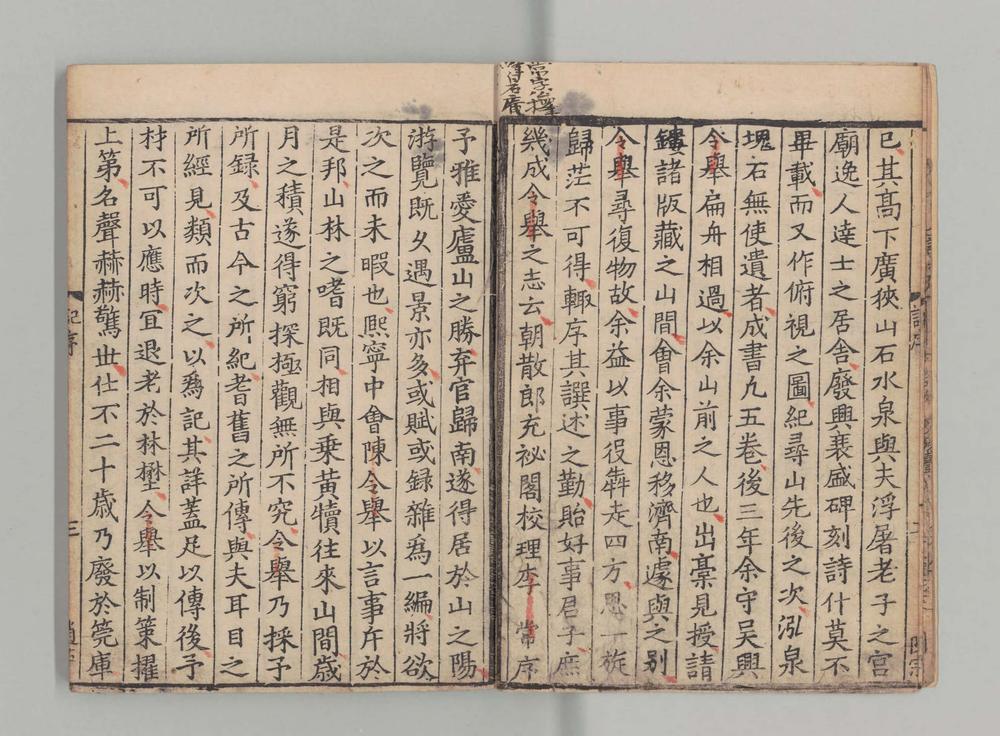 巳其髙下廣狹山石水泉與夫浮屠老子之宮
廟逸人逹士之居舎廢興衰盛碑刻詩什莫不
畢載而又作俯視之圖紀尋山先後之次泓泉
塊石無使遺者成書九五卷後三年余守吴興
令舉扁舟相過以余山前之人也出稾見授請
鏤諸版藏之山間會余蒙恩移濟南遽與之别
令舉尋復物故余益以事役犇走四方思一旋
歸茫不可得輙序其譔述之勤貽好事君子庶
幾成令舉之志云朝散郎充祕閣校理李常序
予雅愛廬山之勝弃官歸南遂得居於山之陽
游覽既夊遇景亦多或賦或録雜爲一編將欲
次之而未暇也熈寧中會陳令舉以言事斥於
是邦山林之嗜既同相與乗黄犢往來山間歳
月之積遂得窮探極觀無所不究令舉乃採予
所録及古今之所紀耆舊之所傳與夫耳目之
所經見類而次之以爲記其詳葢足以傳後予
材不可以應時冝退老於林壄令舉以制策擢
上第名聲赫赫驚丗仕不二十歳乃廢於筦庫
記序
三